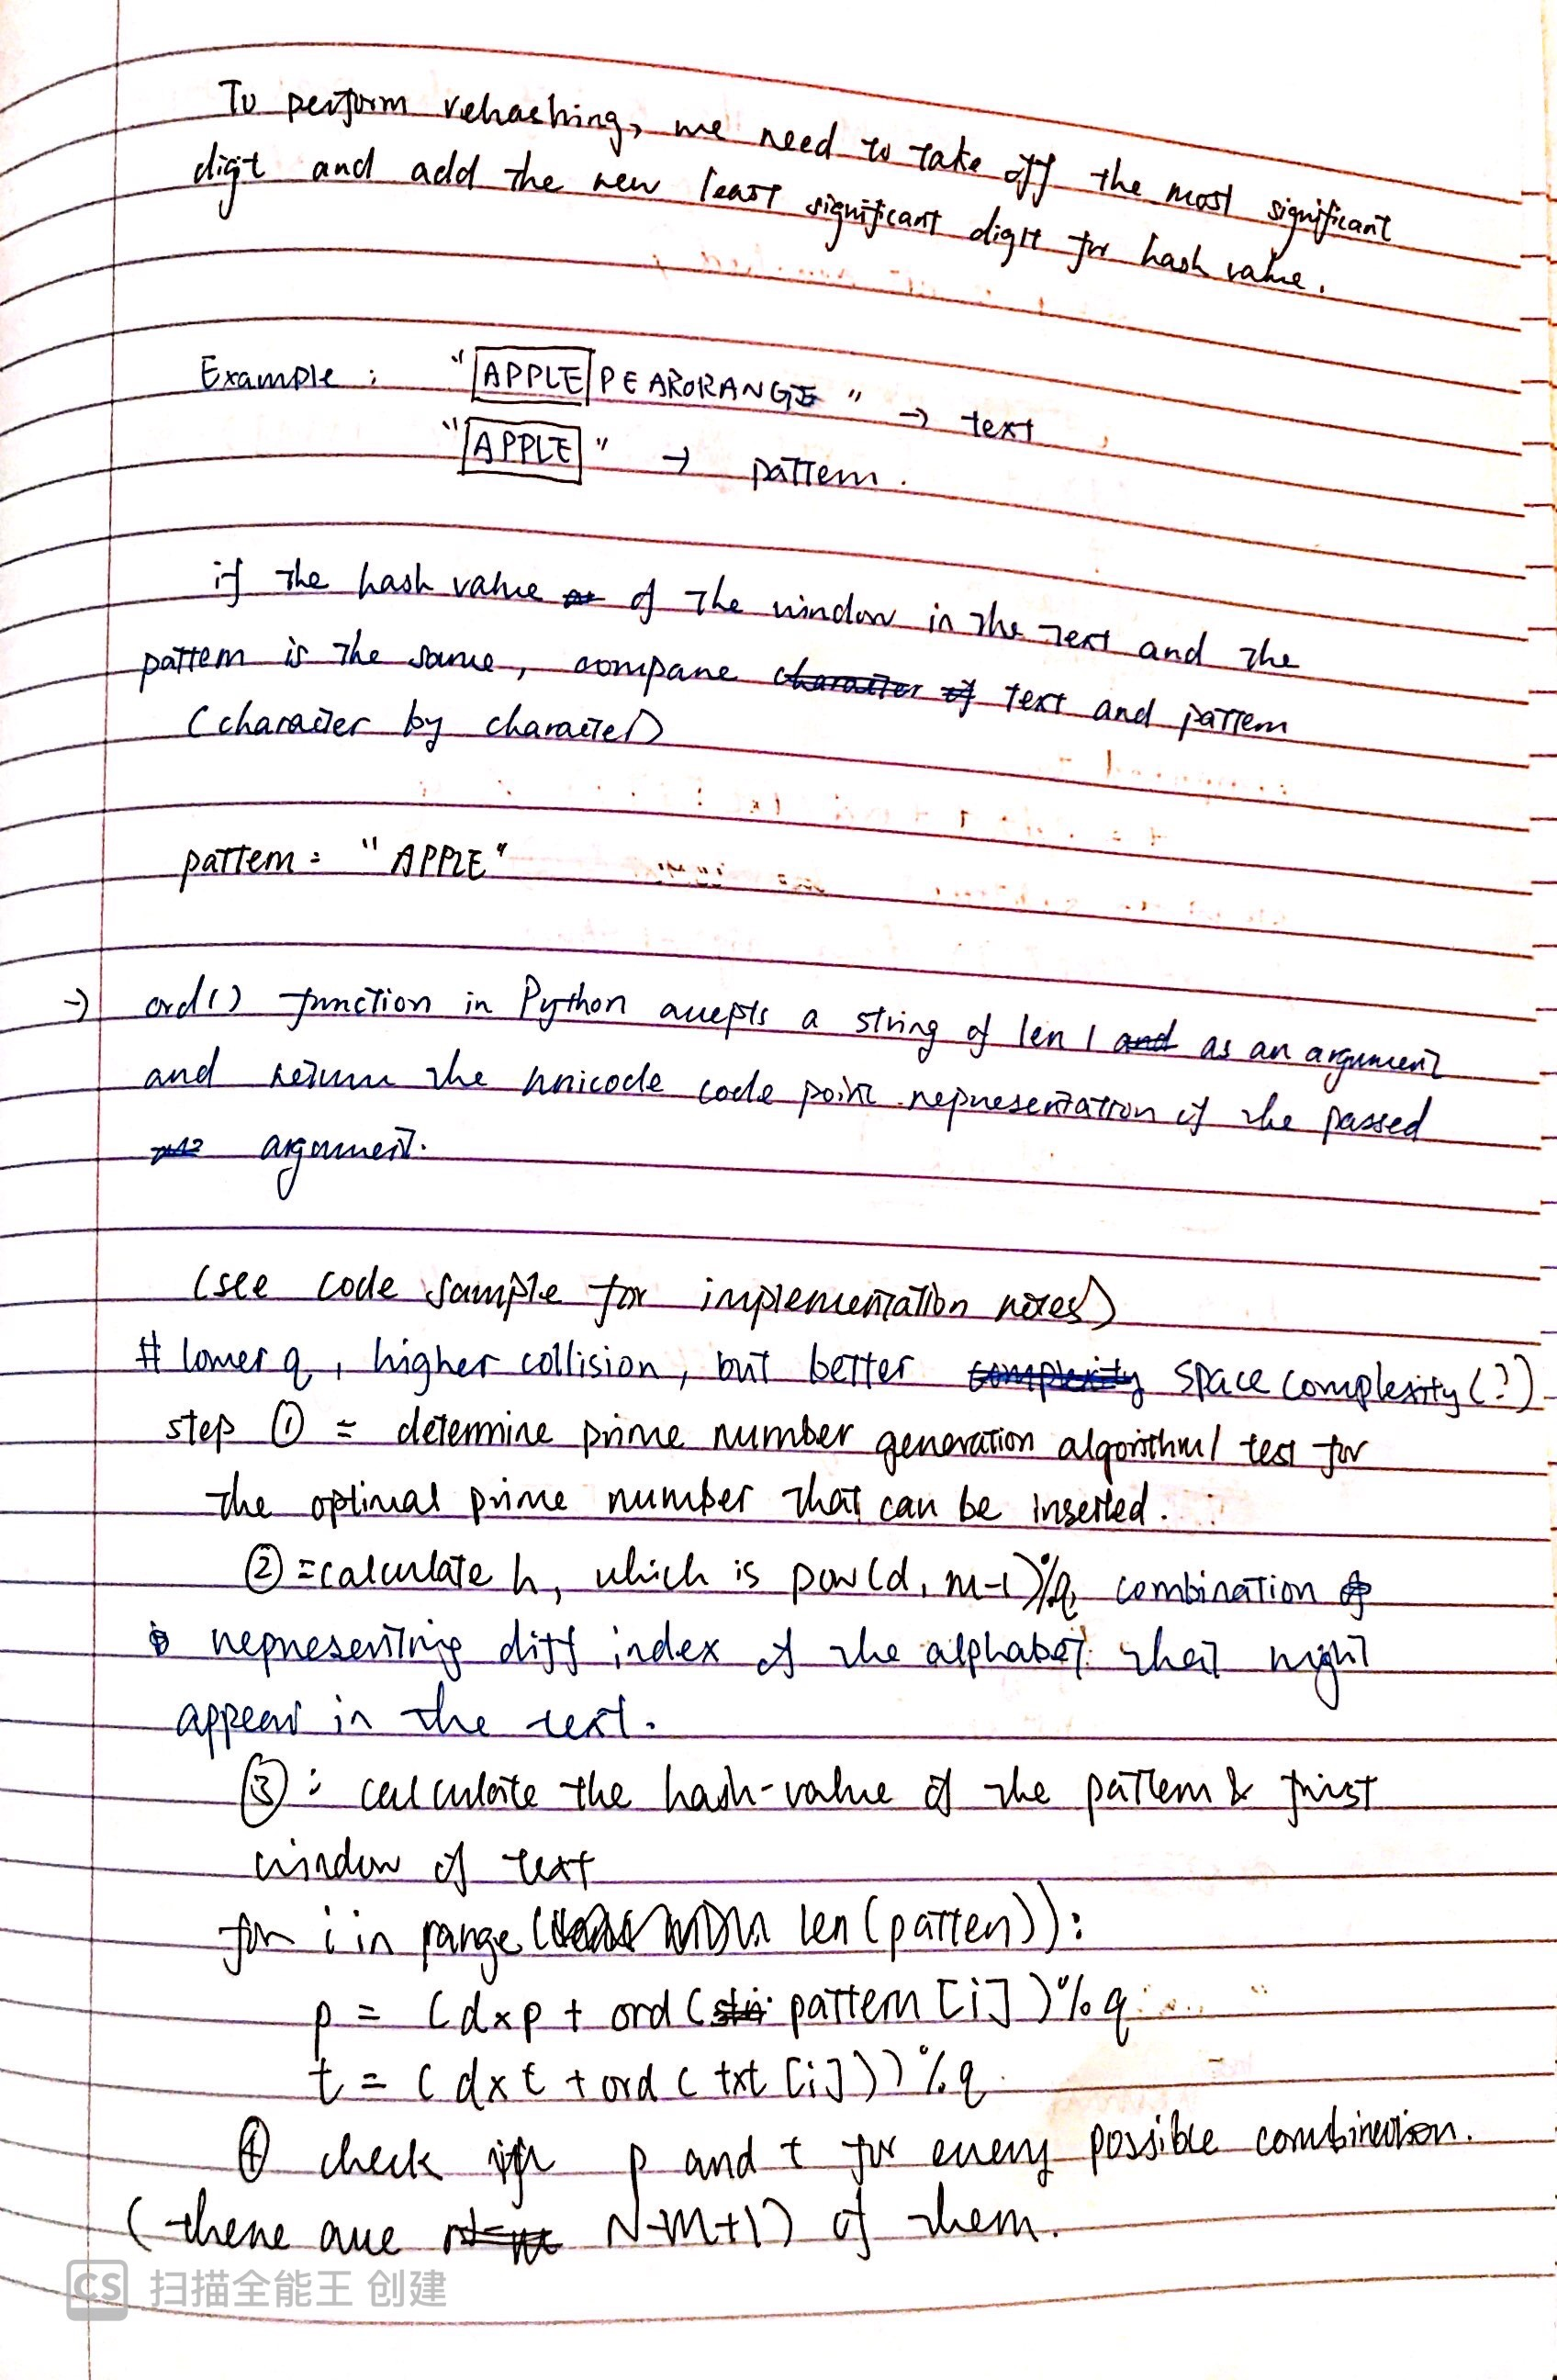 To perform rehashing, we need to take off the most significant
digit and add the new least significant digit for hash value.
Example : "APPLEPEARORANGE" → text
"APPLE" → pattern.
if the hash value of the window in the text and the
pattern is the same, compare text and pattern
(character by character)
pattern = "APPLE"
→ ord() function in Python accepts a string of len 1 as an argument
and return the unicode code point representation of the passed
argument.
(see code sample for implementation notes)
# lower q, higher collision, but better space complexity (?)
step ① = determine prime number generation algorithm / test for
the optimal prime number that can be inserted.
② = calculate h, which is pow(d, m-1)%q, combination
representing diff index of the alphabet that might
appear in the text.
③ : calculate the hash-value of the pattern & first
window of text
for i in range ( len (patten)):
p = (d×p + ord ( pattern [i] )%q
t = (d×t + ord ( txt [i]))%q
④ check p and t for every possible combination.
(there are N-m+1) of them.
CS 扫描全能王 创建